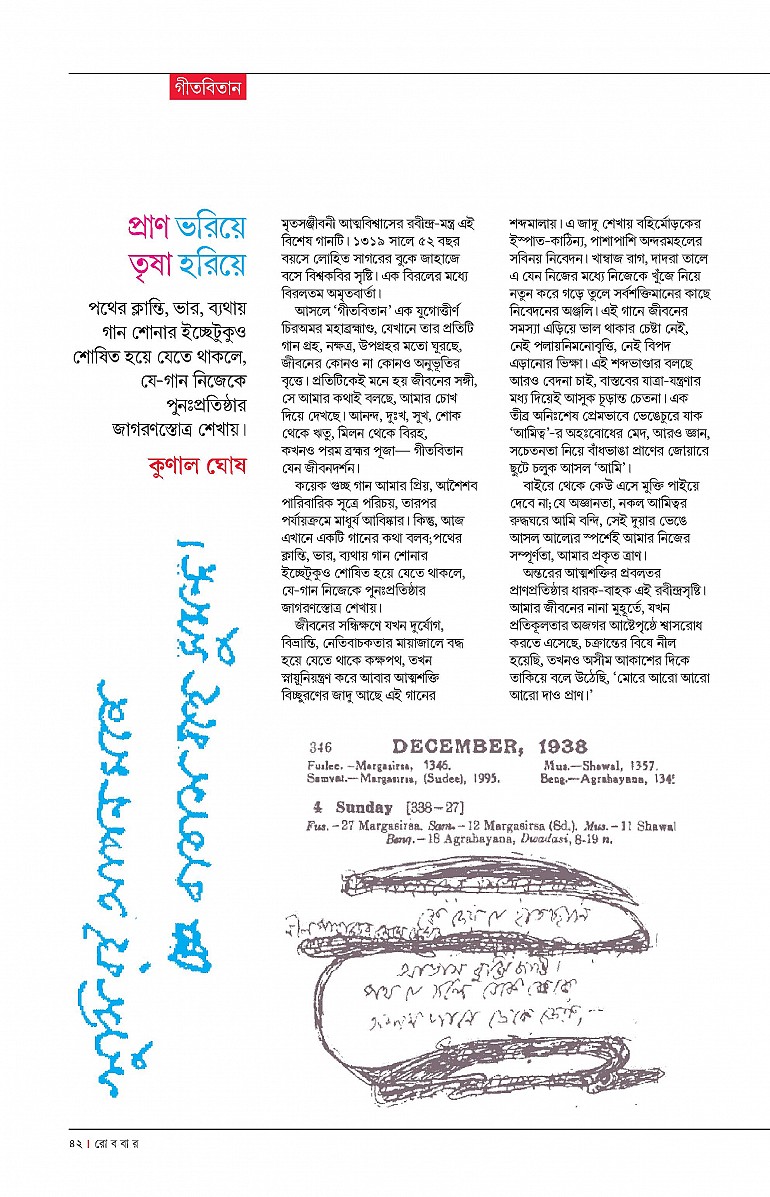 গীতবিতান
প্রাণ ভরিয়ে
তৃষা হরিয়ে
পথের ক্লান্তি, ভার, ব্যথায়
গান শোনার ইচ্ছেটুকুও
শোষিত হয়ে যেতে থাকলে,
যে-গান নিজেকে
পুনঃপ্রতিষ্ঠার
জাগরণস্তোত্র শেখায়।
কুণাল ঘোষ
মৃতসঞ্জীবনী আত্মবিশ্বাসের রবীন্দ্র-মন্ত্র এই
বিশেষ গানটি। ১৩১৯ সালে ৫২ বছর
বয়সে লোহিত সাগরের বুকে জাহাজে
বসে বিশ্বকবির সৃষ্টি। এক বিরলের মধ্যে
বিরলতম অমৃতবার্তা।
আসলে ‘গীতবিতান’ এক যুগোত্তীর্ণ
চিরঅমর মহাব্রহ্মাণ্ড, যেখানে তার প্রতিটি
গান গ্রহ, নক্ষত্র, উপগ্রহর মতো ঘুরছে,
জীবনের কোনও না কোনও অনুভূতির
বৃত্তে। প্রতিটিকেই মনে হয় জীবনের সঙ্গী,
সে আমার কথাই বলছে, আমার চোখ
দিয়ে দেখছে। আনন্দ, দুঃখ, সুখ, শোক
থেকে ঋতু, মিলন থেকে বিরহ,
কখনও পরম ব্রহ্মর পূজা— গীতবিতান
যেন জীবনদর্শন।
কয়েক গুচ্ছ গান আমার প্রিয়, আশৈশব
পারিবারিক সূত্রে পরিচয়, তারপর
পর্যায়ক্রমে মাধুর্য আবিষ্কার। কিন্তু, আজ
এখানে একটি গানের কথা বলব;পথের
ক্লান্তি, ভার, ব্যথায় গান শোনার
ইচ্ছেটুকুও শোষিত হয়ে যেতে থাকলে,
যে-গান নিজেকে পুনঃপ্রতিষ্ঠার
জাগরণস্তোত্র শেখায়।
জীবনের সন্ধিক্ষণে যখন দুর্যোগ,
বিভ্রান্তি, নেতিবাচকতার মায়াজালে বদ্ধ
হয়ে যেতে থাকে কক্ষপথ, তখন
স্নায়ুনিয়ন্ত্রণ করে আবার আত্মশক্তি
বিচ্ছুরণের জাদু আছে এই গানের
শব্দমালায়। এ জাদু শেখায় বহির্মোড়কের
ইস্পাত-কাঠিন্য, পাশাপাশি অন্দরমহলের
সবিনয় নিবেদন। খাম্বাজ রাগ, দাদরা তালে
এ যেন নিজের মধ্যে নিজেকে খুঁজে নিয়ে
নতুন করে গড়ে তুলে সর্বশক্তিমানের কাছে
নিবেদনের অঞ্জলি। এই গানে জীবনের
সমস্যা এড়িয়ে ভাল থাকার চেষ্টা নেই,
নেই পলায়নিমনোবৃত্তি, নেই বিপদ
এড়ানোর ভিক্ষা। এই শব্দভাণ্ডার বলছে
আরও বেদনা চাই, বাস্তবের যাত্রা-যন্ত্রণার
মধ্য দিয়েই আসুক চূড়ান্ত চেতনা। এক
তীব্র অনিঃশেষ প্রেমভাবে ভেঙেচুরে যাক
‘আমিত্ব’-র অহংবোধের মেদ, আরও জ্ঞান,
সচেতনতা নিয়ে বাঁধভাঙা প্রাণের জোয়ারে
ছুটে চলুক আসল ‘আমি’।
বাইরে থেকে কেউ এসে মুক্তি পাইয়ে
দেবে না; যে অজ্ঞানতা, নকল আমিত্বর
রুদ্ধঘরে আমি বন্দি, সেই দুয়ার ভেঙে
আসল আলোর স্পর্শেই আমার নিজের
সম্পূর্ণতা, আমার প্রকৃত ত্রাণ।
অন্তরের আত্মশক্তির প্রবলতর
প্রাণপ্রতিষ্ঠার ধারক-বাহক এই রবীন্দ্রসৃষ্টি।
আমার জীবনের নানা মুহূর্তে, যখন
প্রতিকূলতার অজগর আষ্টেপৃষ্ঠে শ্বাসরোধ
করতে এসেছে, চক্রান্তের বিষে নীল
হয়েছি, তখনও অসীম আকাশের দিকে
তাকিয়ে বলে উঠেছি, ‘মোরে আরো আরো
আরো দাও প্রাণ।’
346 DECEMBER, 1938
Fuslee. –Margasirsa, 1346. Mus.—Shawal, 1357.
Samvat.—Margasirsa, (Sudee), 1995. Beng.—Agrahayana, 134
4 Sunday [338–27]
Fus. –27 Margasirsa. Sam. –12 Margasirsa (Sd.). Mus. –11 Shawal
Beng. –18 Agrahayana, Dwadasi, 8-19 n.
৪২ । রোববার